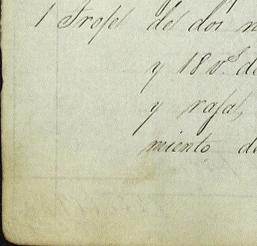 1 Trofel del dos
y 18 vs de
y rafa,
miento de